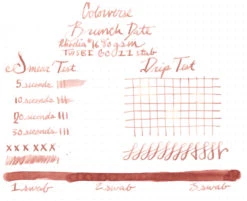 Colorverse
Brunch Date
Rhodia #16 80 gsm
TWSBI GO 1.1 stub
Smear Test
Drip Test
5 seconds
10 seconds
20 seconds
30 seconds
XXX XXX
1 swab 2 swab 3 swab